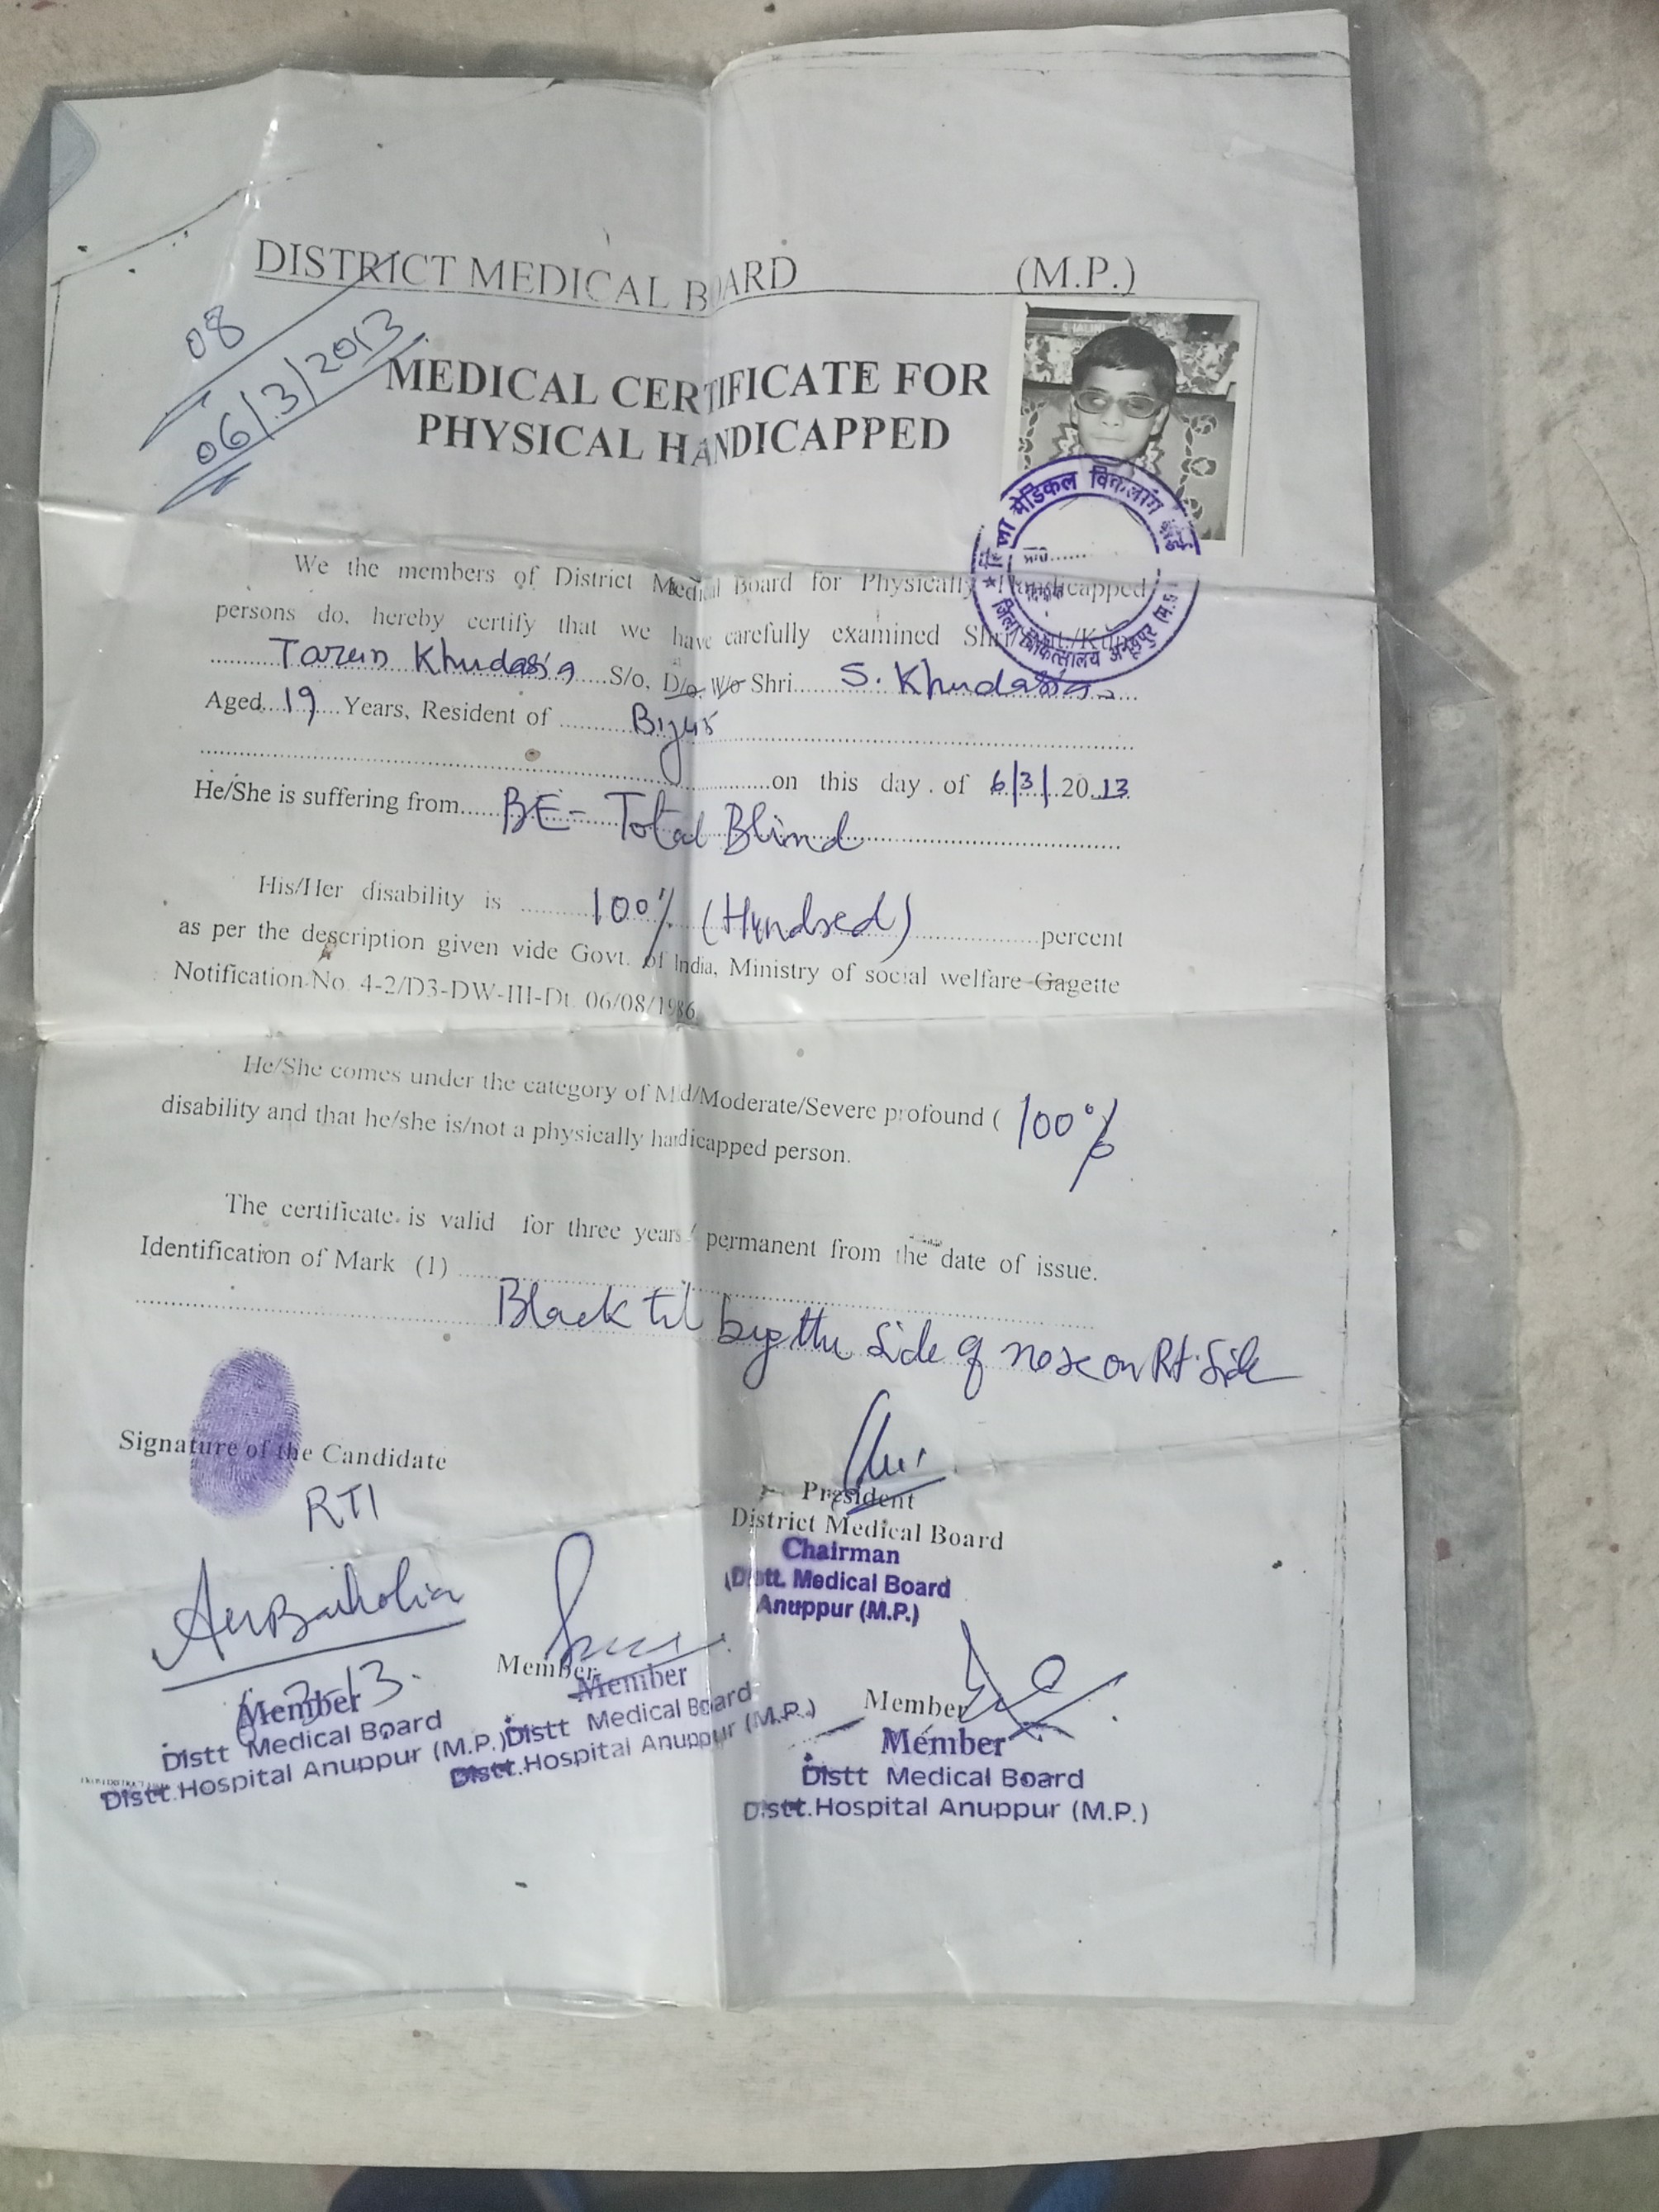 DISTRICT MEDICAL BOARD (M.P.)
08
06/3/2013
MEDICAL CERTIFICATE FOR
PHYSICAL HANDICAPPED
मेडिकल विकलांग
जिला चिकित्सालय अनूपपुर
We the members of District Medical Board for Physically Handicapped
persons do, hereby certify that we have carefully examined Shri/Smt./Kum.
Tarun Khudasia S/o, D/o, W/o Shri S. Khudasia
Aged 19 Years, Resident of Bijuri
on this day of 6/3/2013
He/She is suffering from BE - Total Blind
His/Her disability is 100% (Hundred) percent
as per the description given vide Govt. of India, Ministry of social welfare Gagette
Notification No. 4-2/D3-DW-III-Dt. 06/08/1986
He/She comes under the category of Mild/Moderate/Severe profound ( 100%
disability and that he/she is/not a physically handicapped person.
The certificate is valid for three years / permanent from the date of issue.
Identification of Mark (1)
Black til by the side of nose on Rt. Side
Signature of the Candidate
RTI
President
District Medical Board
Chairman
Distt. Medical Board
Anuppur (M.P.)
Member
Distt Medical Board
Distt. Hospital Anuppur (M.P.)
Member
Member
Distt Medical Board
Distt. Hospital Anuppur (M.P.)
Member
Member
Distt Medical Board
Distt. Hospital Anuppur (M.P.)